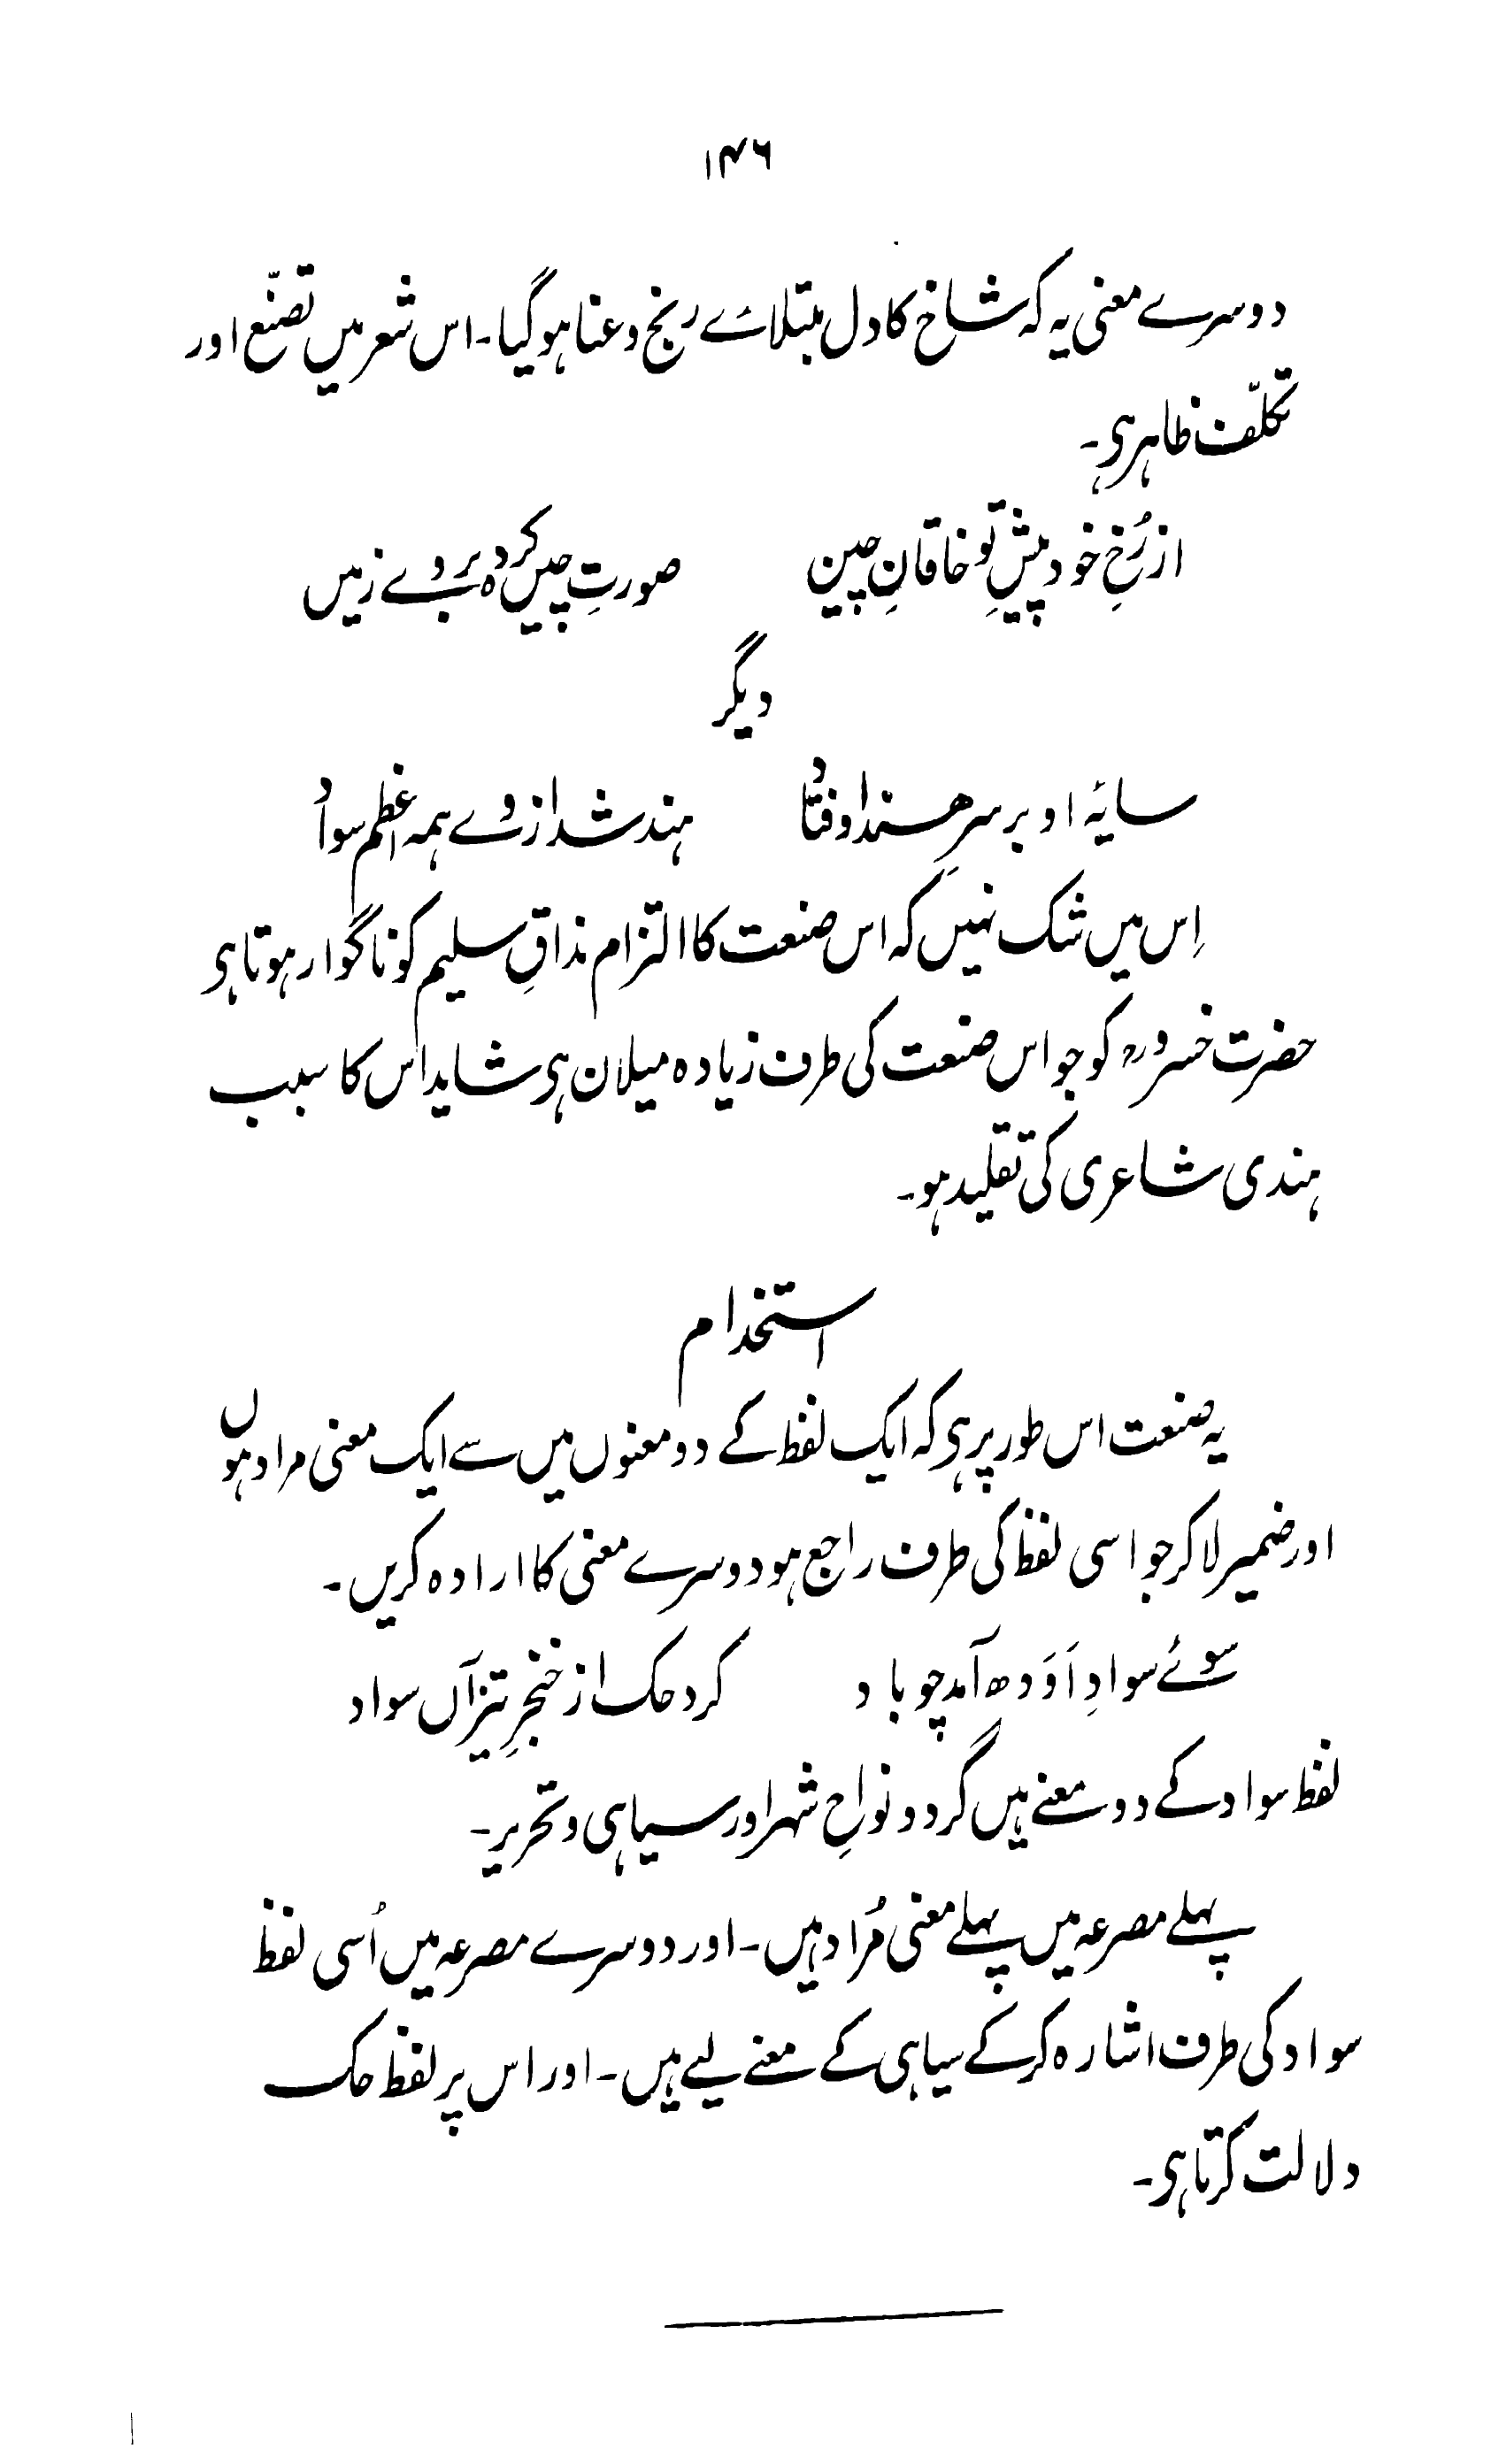 ۱۴۶
دوسرے معنی یہ کہ شاخ کا دل مبتلائے رنج و عنا ہوگیا۔ اس شعر میں تصنّع اور
تکلّف ظاہر ہی۔
از رُخِ خود پیشِ تو خاقانِ چین صورتِ چیں کردہ بروے زمیں
دیگر
سایۂ او بر سرِ ھند اوفتاد ہند شد از وے ہمہ اعظم سواد
اِس میں شک نہیں کہ اس صنعت کا التزام مذاقِ سلیم کو ناگوار ہوتا ہی
حضرت خسروؒ کو جو اس صنعت کی طرف زیادہ میلان ہی شاید اس کا سبب
ہندی شاعری کی تقلید ہو۔
استخدام
یہ صنعت اس طور پر ہی کہ ایک لفظ کے دو معنوں میں سے ایک معنی مراد ہوں
اور ضمیر لاکر جو اسی لفظ کی طرف راجع ہو دوسرے معنی کا ارادہ کریں۔
سوئے سوادِ اَوَدھ آمد چو باد کرد حک از خنجرِ تیز آں سواد
لفظ سواد کے دو معنے ہیں گرد و نواحِ شہر اور سیاہی و تحریر۔
پہلے مصرعہ میں پہلے معنی مُراد ہیں۔ اور دوسرے مصرعہ میں اُسی لفظ
سواد کی طرف اشارہ کرکے سیاہی کے معنے لیے ہیں۔ اور اس پر لفظ حک
دلالت کرتا ہی۔